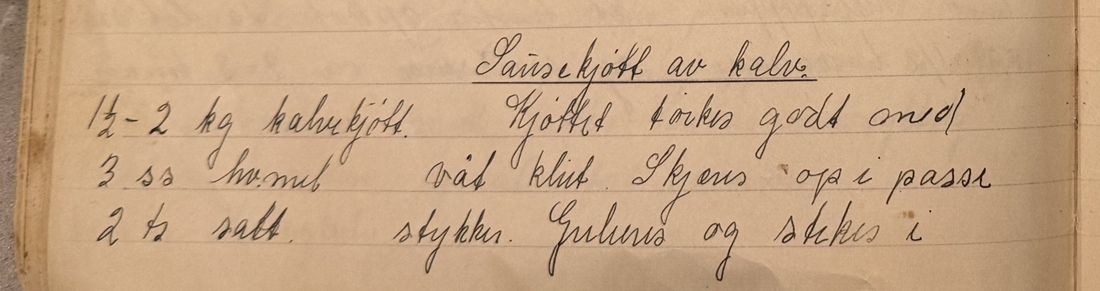 Sausekjøtt av kalv.
1½-2 kg kalvekjøtt. Kjøttet tørkes godt med
3 ss hv.mel våt klut. Skjæres op i passe
2 ts salt. stykker. Gulleres og stekes i